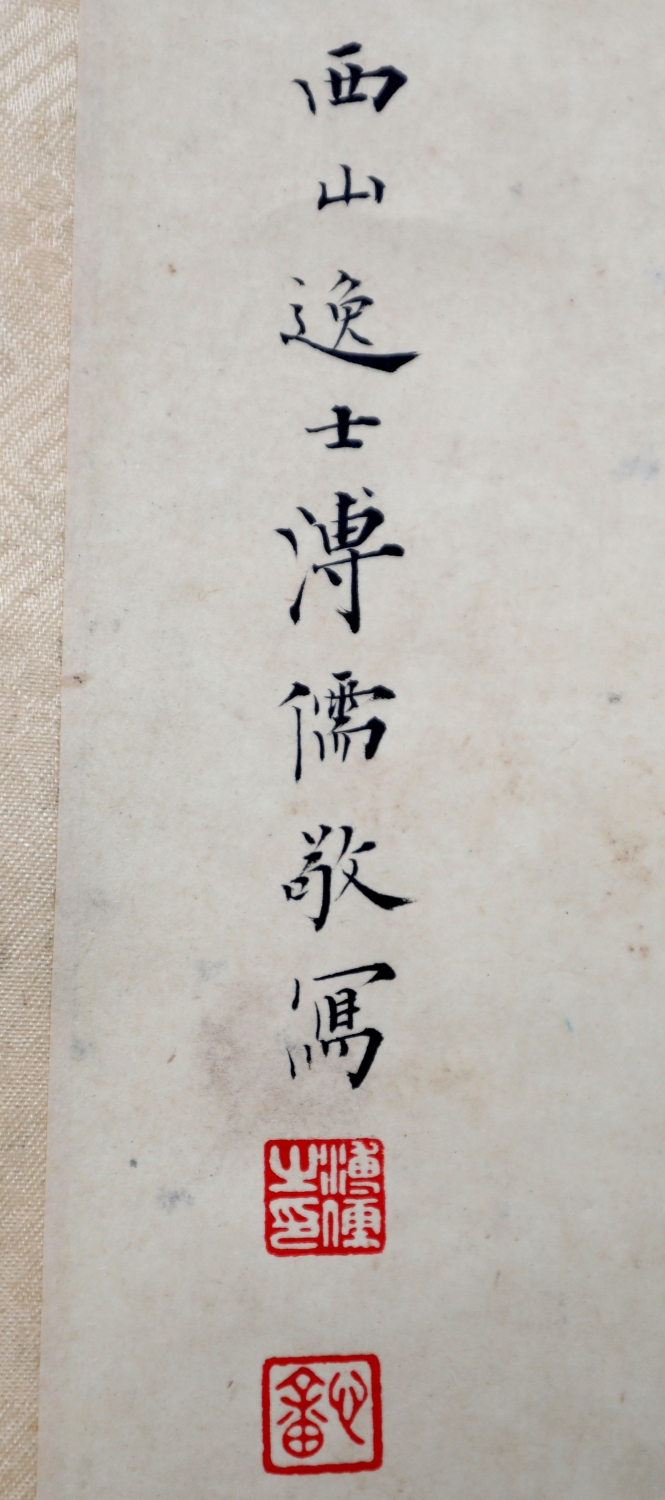 西山逸士溥儒敬寫
溥儒之印
心畬